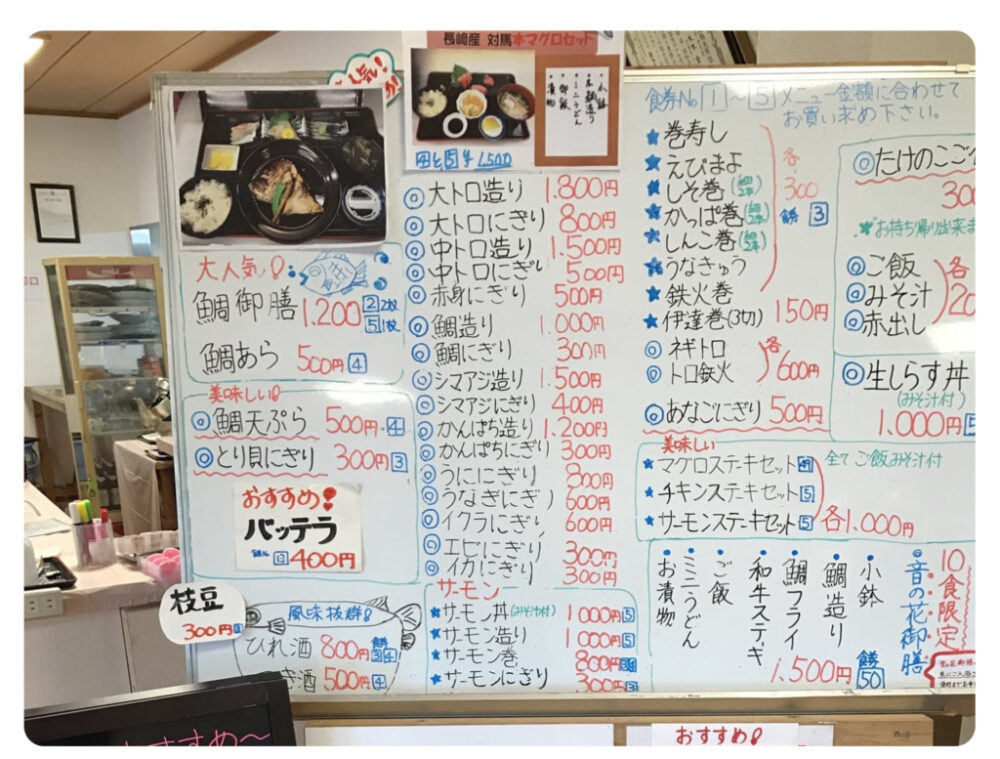 人気!
大人気!
鯛御膳 1.200 ② 2枚
⑤ 1枚
鯛あら 500円 ④
美味しい!
◎鯛天ぷら 500円 ④
◎とり貝にぎり 300円 ③
おすすめ!
バッテラ
400円
枝豆
300円
風味抜群!
ひれ酒 800円
き酒 500円 ④
おすすめ〜
長崎産 対馬本マグロセット
・小鉢
・ミニうどん
・御飯
・漬物
1,500
◎大トロ造り 1.800円
◎大トロにぎり 800円
◎中トロ造り 1.500円
◎中トロにぎり 500円
◎赤身にぎり 500円
◎鯛造り 1.000円
◎鯛にぎり 300円
◎シマアジ造り 1.500円
◎シマアジにぎり 400円
◎かんぱち造り 1.200円
◎かんぱちにぎり 300円
◎うににぎり 800円
◎うなぎにぎり 600円
◎イクラにぎり 600円
◎エビにぎり 300円
◎イカにぎり 300円
サーモン
★サーモン丼(みそ汁付) 1000円 ⑤
★サーモン造り 1000円 ⑤
★サーモン巻 800円
★サーモンにぎり 300円 ③
食券No ①〜⑤ メニュー金額に合わせて
お買い求め下さい。
★巻寿し
★えびまよ
★しそ巻(細2本)
★かっぱ巻(細2本)
★しんこ巻(細2本)
★うなきゅう
各300
券③
★鉄火巻
★伊達巻(3切) 150円
◎ネギトロ
◎トロ鉄火
各600円
◎あなごにぎり 500円
美味しい
★マグロステーキセット
★チキンステーキセット⑤
★サーモンステーキセット⑤
各1.000円
全てご飯みそ汁付
◎たけのこご
300
★お持ち帰り出来ま
◎ご飯
◎みそ汁
◎赤出し
各20
◎生しらす丼
(みそ汁付)
1.000円
10食限定
◎音の花御膳
・小鉢
・鯛造り
・鯛フライ
・和牛ステーキ
・ご飯
・ミニうどん
・お漬物
1.500円
券50
おすすめ!